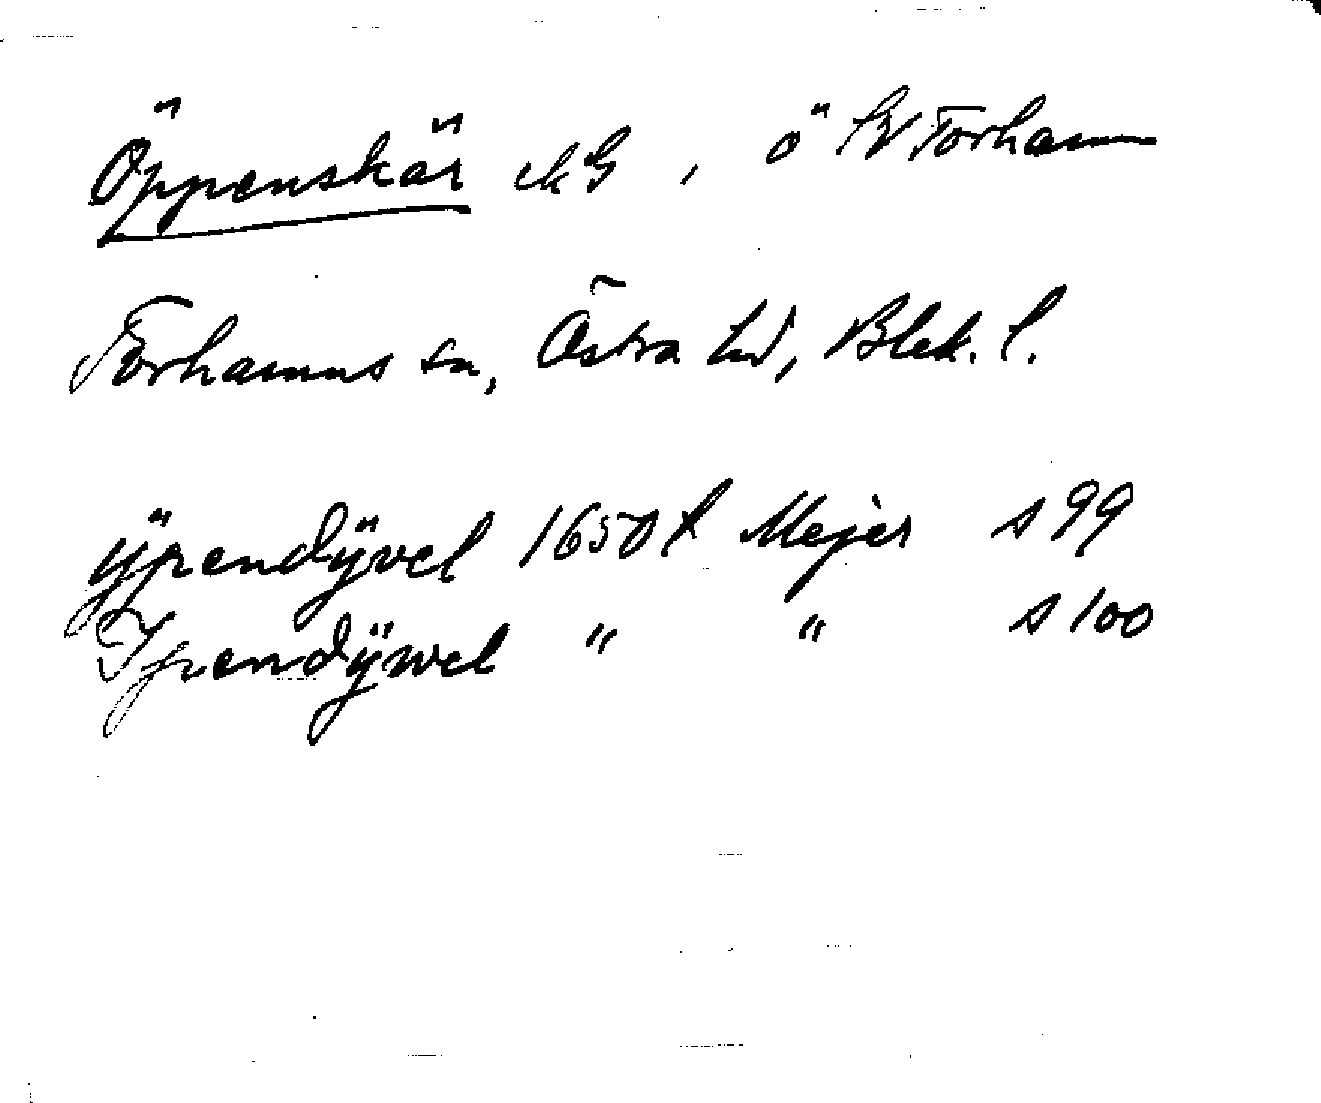 Öppenskär ekG, ö SV Torhamn
Torhamns sn, Östra hd, Blek. l.
ÿpendÿvel 1650 t Mejer s 99
Ypendÿwel " " s 100